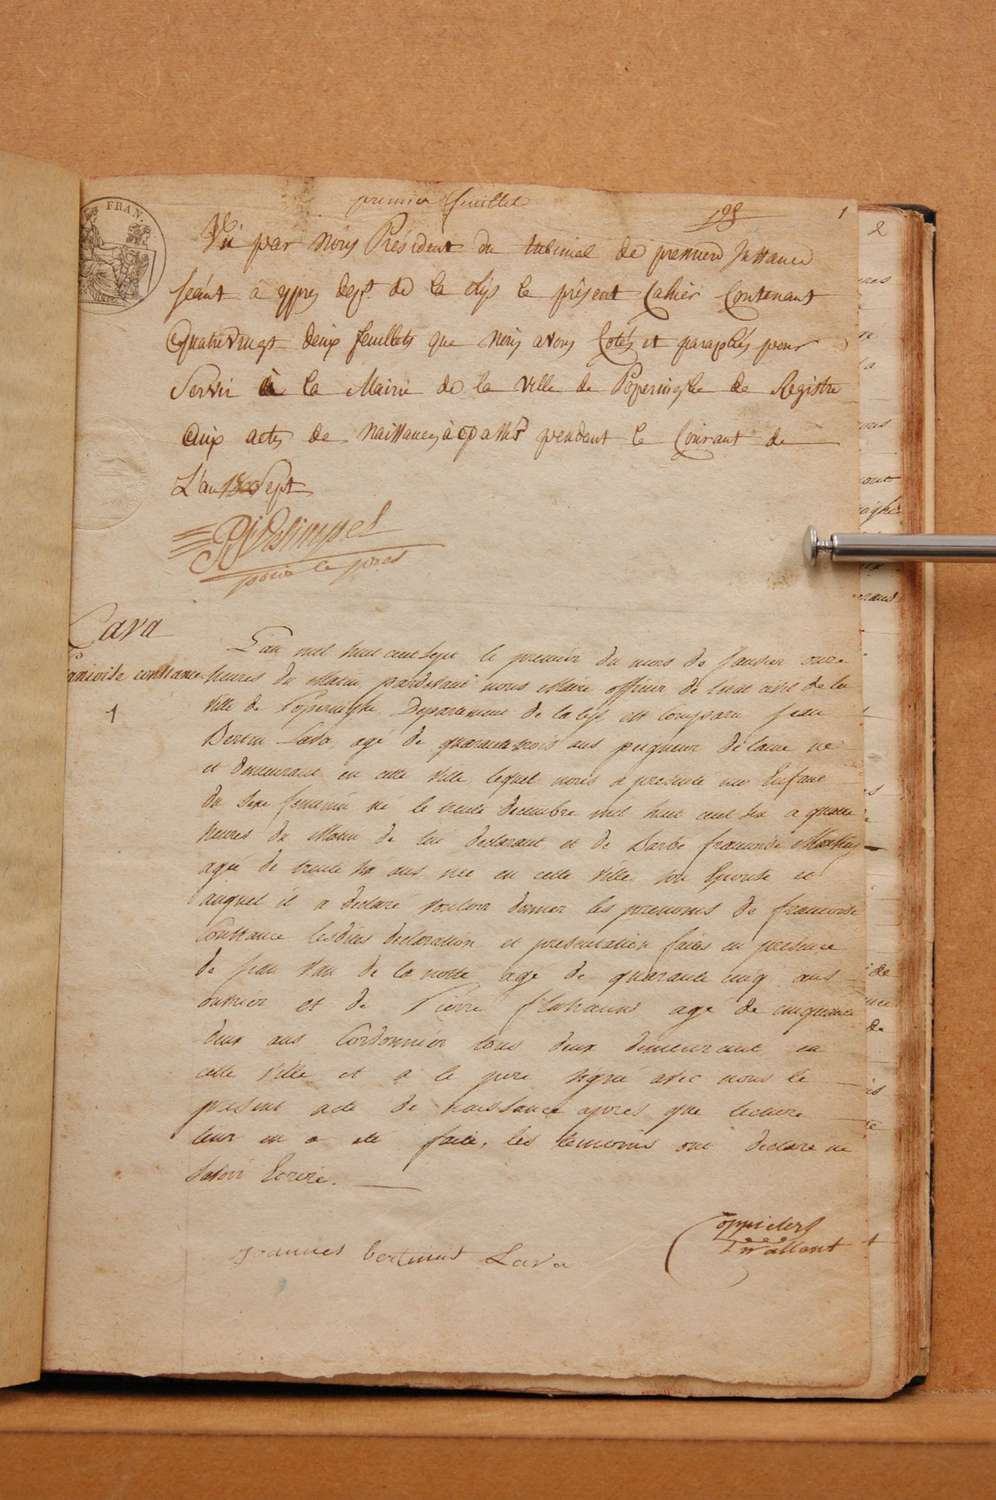 FRAN.
premier feuillet
198
1
2
Vu par Nous Président du tribunal de premiere Instance
séant à ypres dept. de la Lys le présent Cahier Contenant
Quatrevingt deux feuillets que Nous avons Cotés et paraphés pour
Servir à la Mairie de la Ville de Poperinghe de Registre
aux actes de Naissances pendant le Courant de
L'an Sept
pour le pres
Lava
françoise constance
1
L'an mil huit cent sept le premier du mois de Janvier onze
heures du matin pardevant nous Maire officier de l'etat civil de la
Ville de Poperinghe Departement de la Lys est Comparu Jean
Bertin Lava agé de quarante trois ans peigneur de laine né
et demeurant en cette Ville lequel nous a presenté une Enfant
du Sexe feminin né le trente decembre mil huit cent six a quatre
heures du Matin de lui declarant et de Barbe françoise
agée de trente ans née en cette Ville son Epouse et
auquel il a declaré Vouloir donner les prenoms de françoise
Constance lesdites declaration et presentation faites en presence
de Jean Van de la noitte agé de quarante cinq ans
ouvrier et de Pierre agé de cinquante
deux ans Cordonnier tous deux demeurant en
cette Ville et a le pere signé avec nous le
present acte de naissance apres que lecture
leur en a eté faite, les temoins ont declaré ne
Savoir Ecrire.
Joannes bertinus Lava